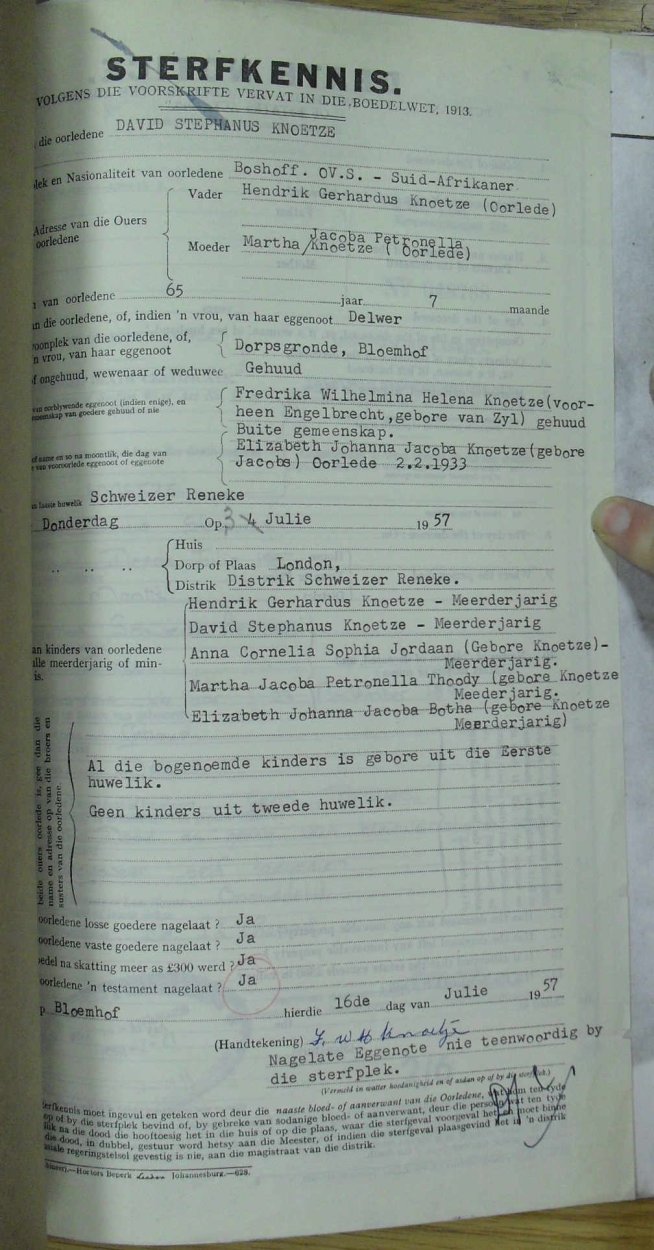 STERFKENNIS.
VOLGENS DIE VOORSKRIFTE VERVAT IN DIE BOEDELWET, 1913.
die oorledene DAVID STEPHANUS KNOETZE
plek en Nasionaliteit van oorledene Boshoff. OV.S. - Suid-Afrikaner
Vader Hendrik Gerhardus Knoetze (Oorlede)
Adresse van die Ouers
oorledene
Jacoba Petronella
Moeder Martha/Knoetze ( Oorlede)
van oorledene 65 jaar 7 maande
die oorledene, of, indien 'n vrou, van haar eggenoot Delwer
woonplek van die oorledene, of,
'n vrou, van haar eggenoot Dorpsgronde, Bloemhof
of ongehuud, wewenaar of weduwee Gehuud
van oorblywende eggenoot (indien enige), en Fredrika Wilhelmina Helena Knoetze(voor-
gemeenskap van goedere gehuud of nie heen Engelbrecht,gebore van Zyl) gehuud
Buite gemeenskap.
name en so na moontlik, die dag van Elizabeth Johanna Jacoba Knoetze(gebore
van vooroorlede eggenoot of eggenote Jacobs) Oorlede 2.2.1933
laaste huwelik Schweizer Reneke
Donderdag Op 3 4 Julie 1957
Huis
.. .. .. Dorp of Plaas London,
Distrik Distrik Schweizer Reneke.
Hendrik Gerhardus Knoetze - Meerderjarig
David Stephanus Knoetze - Meerderjarig
van kinders van oorledene Anna Cornelia Sophia Jordaan (Gebore Knoetze)-
alle meerderjarig of min- Meerderjarig.
is. Martha Jacoba Petronella Thoody (gebore Knoetze
Meederjarig.
Elizabeth Johanna Jacoba Botha (gebore Knoetze
Meerderjarig)
beide ouers oorlede is, gee dan die
name en adresse op van die broers en
susters van die oorledene.
Al die bogenoemde kinders is gebore uit die Eerste
huwelik.
Geen kinders uit tweede huwelik.
oorledene losse goedere nagelaat ? Ja
oorledene vaste goedere nagelaat ? Ja
boedel na skatting meer as £300 werd ? Ja
oorledene 'n testament nagelaat ? Ja
Bloemhof hierdie 16de dag van Julie 1957
(Handtekening) F. W H Knoetze
Nagelate Eggenote nie teenwoordig by
die sterfplek.
(Vermeld in watter hoedanigheid en of asdan op of by die sterfplek.)
Sterfkennis moet ingevul en geteken word deur die naaste bloed- of aanverwant van die Oorledene,
op of by die sterfplek bevind of, by gebreke van sodanige bloed- of aanverwant, deur die persoon wat ten tyde
na die dood die hooftoesig het in die huis of op die plaas, waar die sterfgeval voorgeval het en moet binne
die dood, in dubbel, gestuur word hetsy aan die Meester, of indien die sterfgeval plaasgevind het in 'n distrik
regeringstelsel gevestig is nie, aan die magistraat van die distrik.
Hortors Beperk Johannesburg.—628.